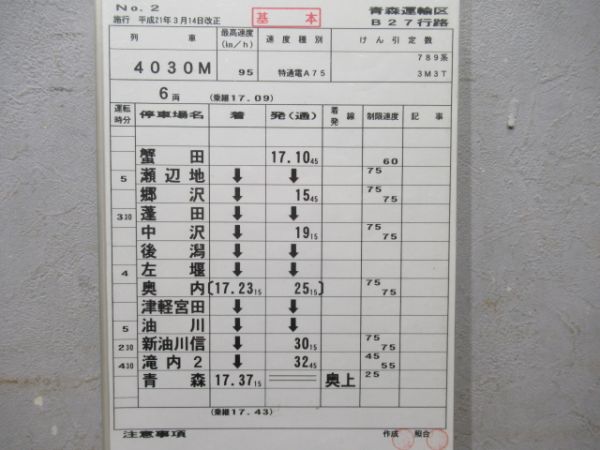 No.2
施行 平成21年3月14日改正
基本
青森運輸区
B27行路
列車
最高速度
(km/h)
速度種別
けん引定数
4030M
95
特通電A75
789系
3M3T
6両
(乗継17.09)
運転
時分
停車場名
着
発(通)
着発線
制限速度
記事
蟹田 17.10 45 60
5 瀬辺地 ↓ ↓ 75
郷沢 ↓ 15 45 75 75
3 30 蓬田 ↓ ↓
中沢 ↓ 19 15 75 75
後潟 ↓ ↓
4 左堰 ↓ ↓
奥内 [17.23 15 25 15] 75 75
津軽宮田 ↓ ↓
5 油川 ↓ ↓
2 30 新油川信 ↓ 30 15 75 75
4 30 滝内2 ↓ 32 45 45 55
青森 17.37 15 奥上 25
(乗継17.43)
注意事項
作成 照合